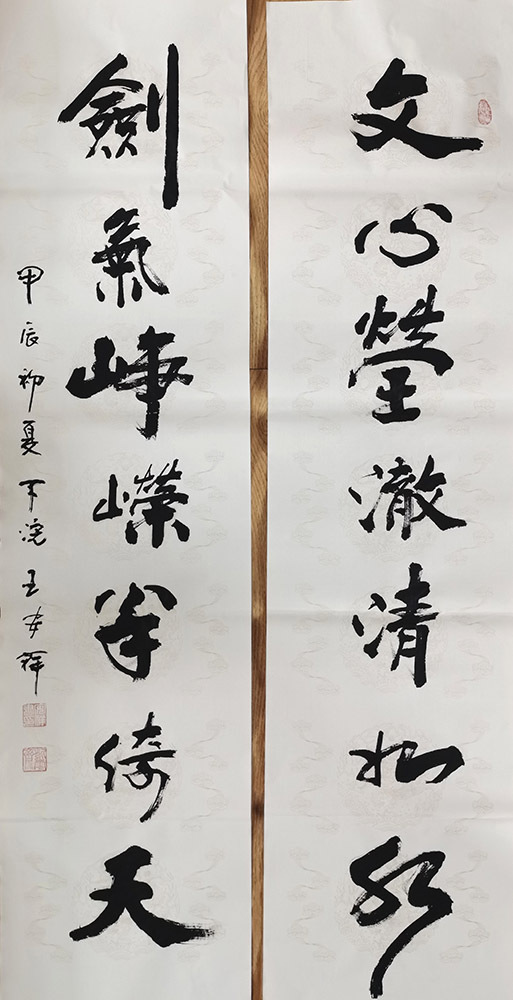 文心瑩澈清如水
劍氣崢嶸倚天
甲辰初夏下浣王安